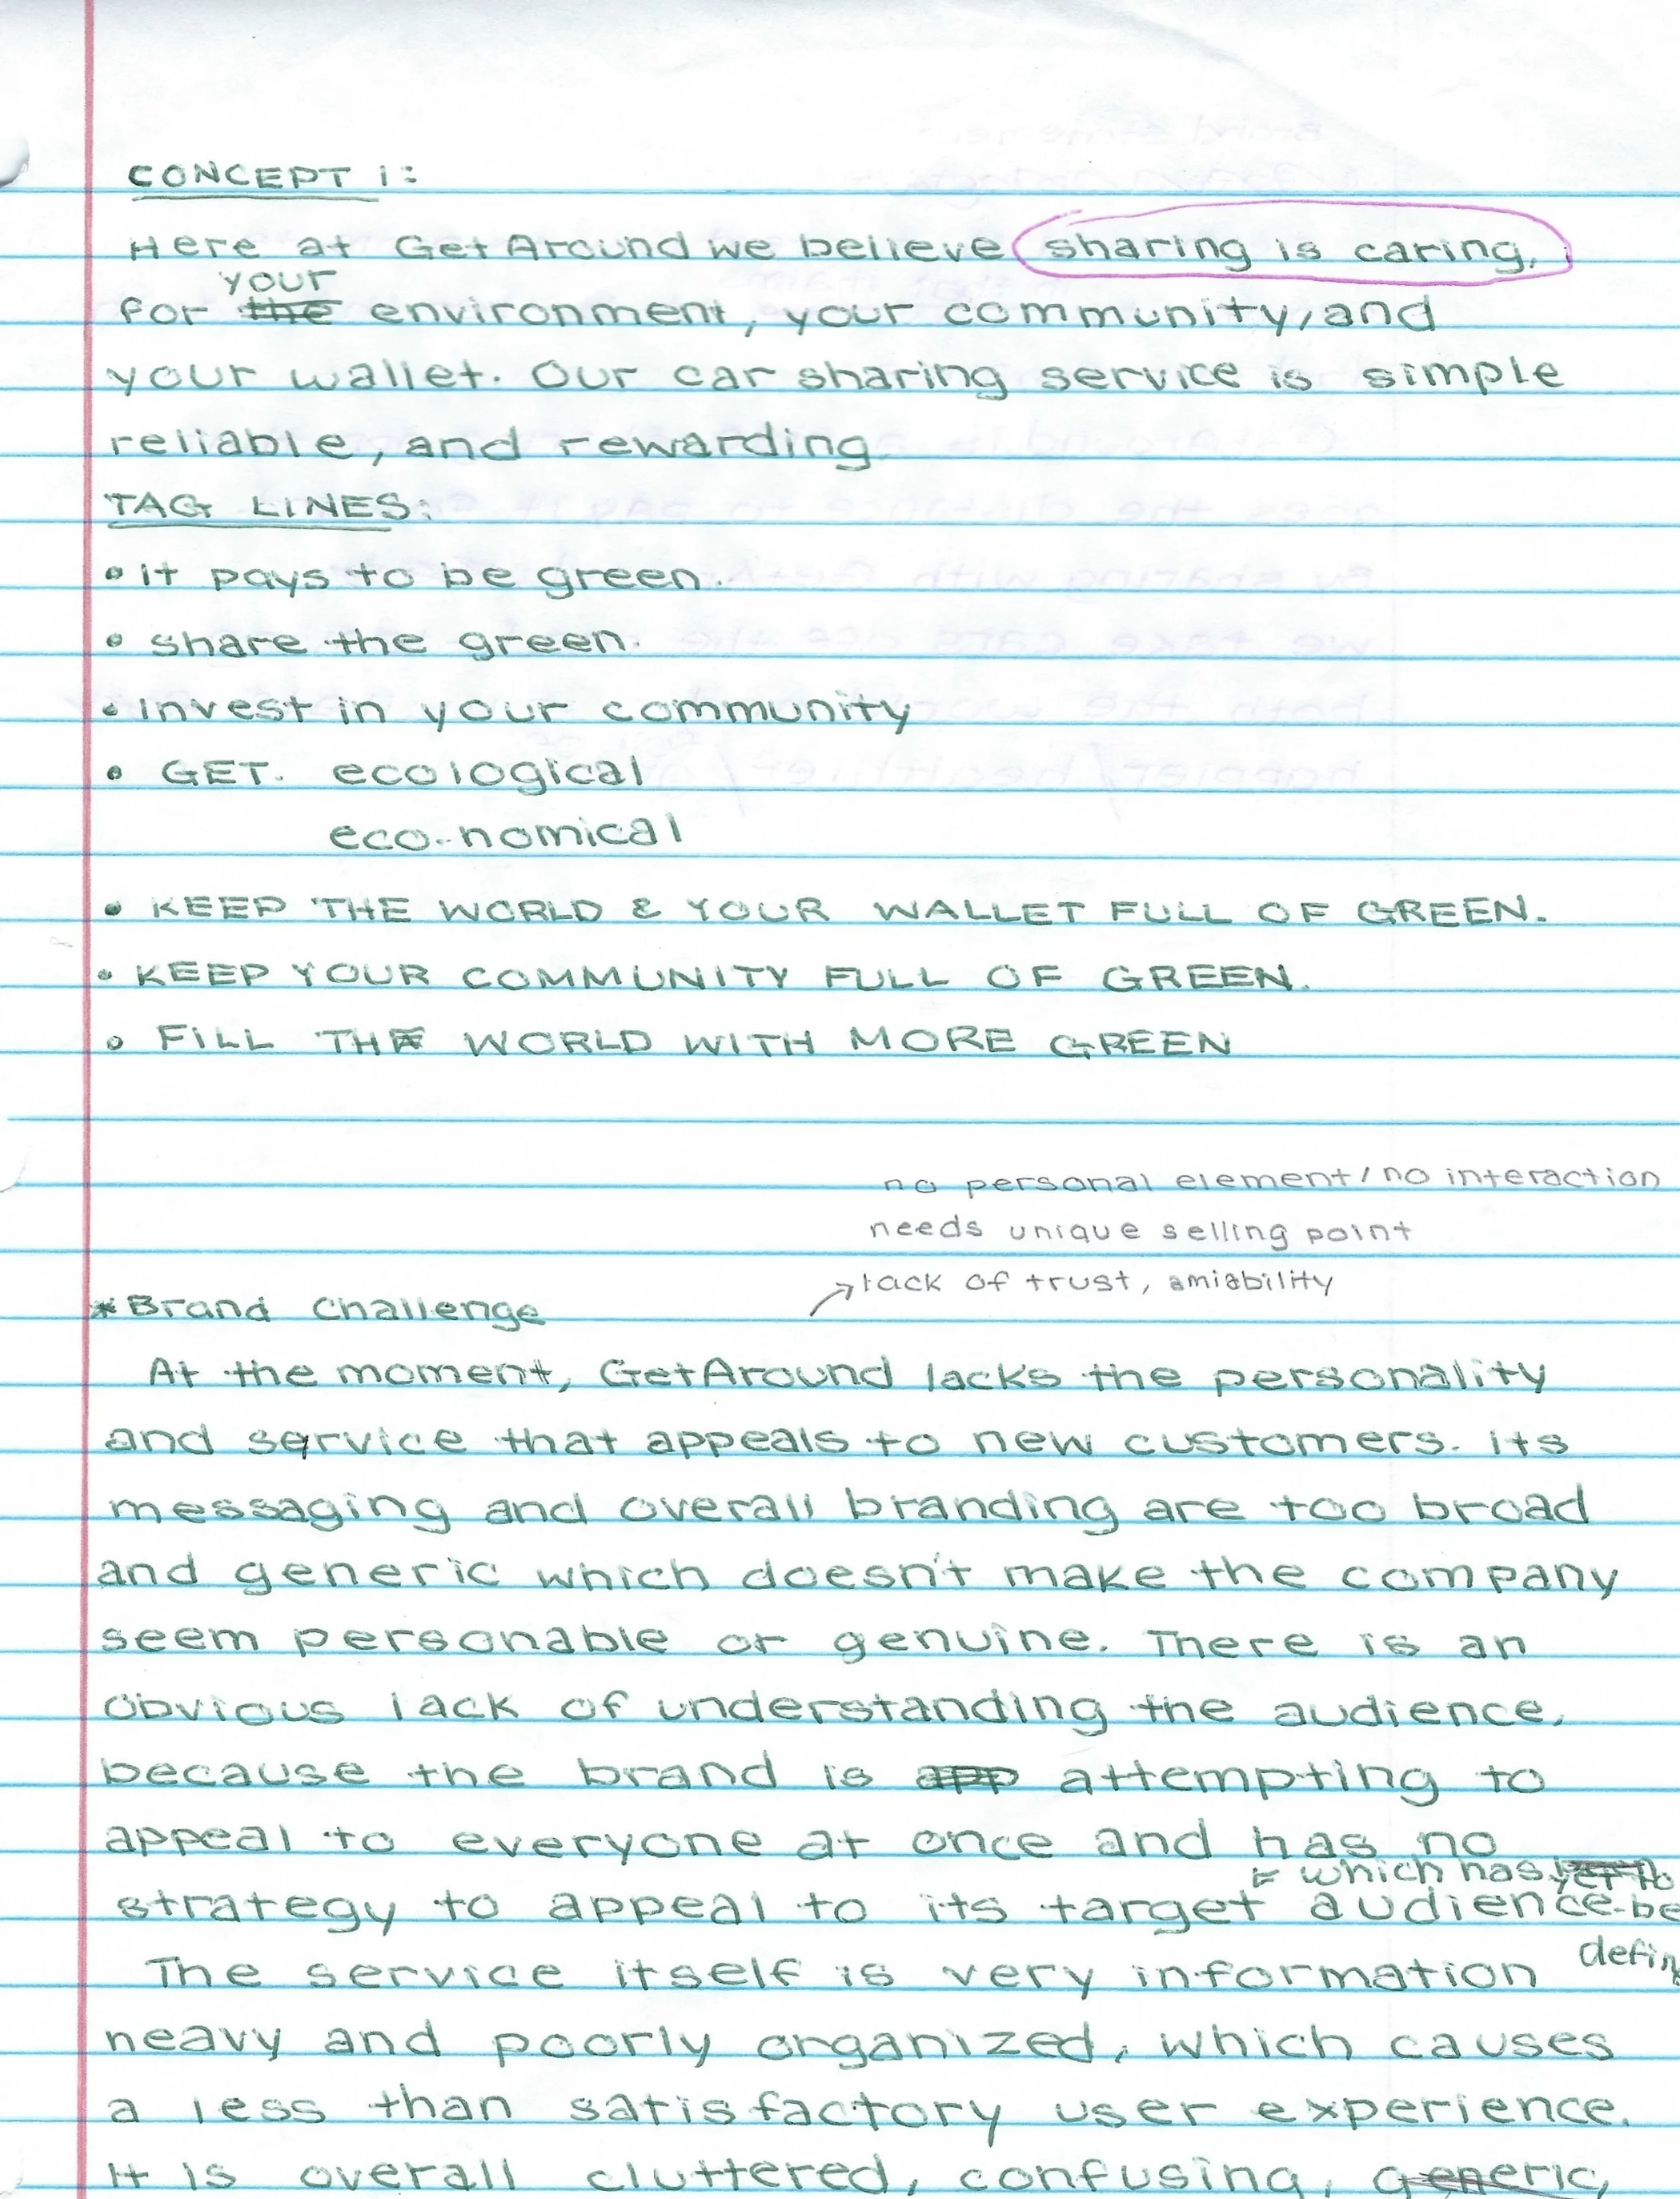 CONCEPT 1:
Here at GetAround we believe sharing is caring,
your
for the environment, your community, and
your wallet. Our car sharing service is simple
reliable, and rewarding
TAG LINES:
• It pays to be green.
• share the green.
• Invest in your community
• GET. ecological
eco-nomical
• KEEP THE WORLD & YOUR WALLET FULL OF GREEN.
• KEEP YOUR COMMUNITY FULL OF GREEN.
• FILL THE WORLD WITH MORE GREEN
no personal element / no interaction
needs unique selling point
lack of trust, amiability
*Brand Challenge
At the moment, GetAround lacks the personality
and service that appeals to new customers. Its
messaging and overall branding are too broad
and generic which doesn't make the company
seem personable or genuine. There is an
obvious lack of understanding the audience,
because the brand is app attempting to
appeal to everyone at once and has no
which has yet to
strategy to appeal to its target audience. be
defin
The service itself is very information
heavy and poorly organized, which causes
a less than satisfactory user experience.
It is overall cluttered, confusing, generic,